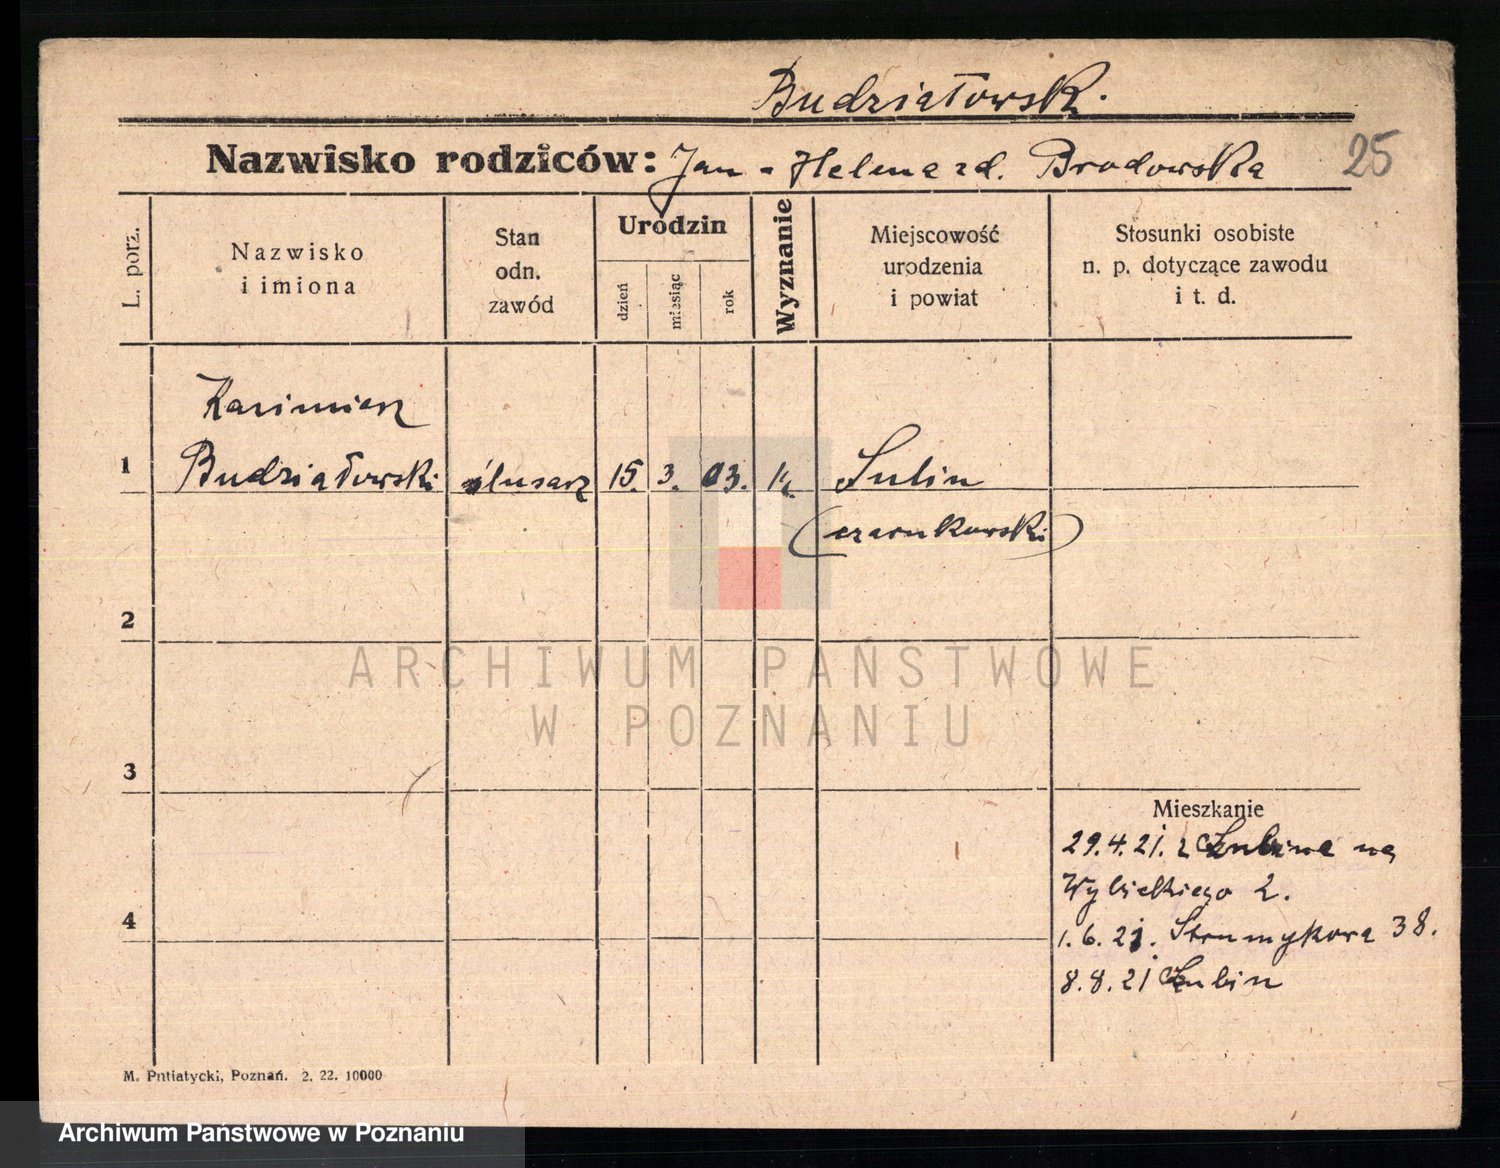 Budziałowski.
Nazwisko rodziców: Jan - Helena zd. Brodowska
25
L. porz.
Nazwisko
i imiona
Stan
odn.
zawód
Urodzin
dzień
miesiąc
rok
Wyznanie
Miejscowość
urodzenia
i powiat
Stosunki osobiste
n. p. dotyczące zawodu
i t. d.
Kazimierz
1 Budziałowski ślusarz 15. 3. 03. k. Lubin
(czarnkowski)
2
ARCHIWUM PAŃSTWOWE
W POZNANIU
3
Mieszkanie
29.4.21. z Lubina na
Wybickiego 2.
4
1.6.21. Strumykowa 38.
8.8.21 Lubin
M. Putiatycki, Poznań. 2. 22. 10000
Archiwum Państwowe w Poznaniu